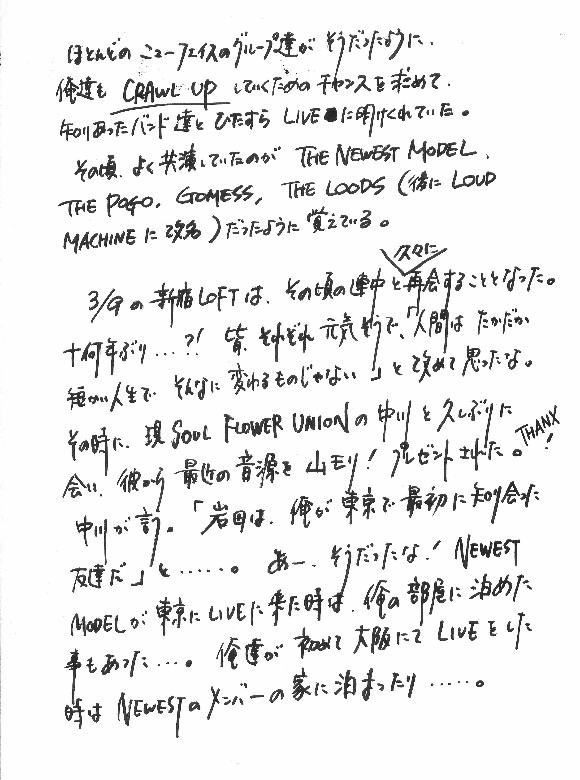 ほとんどの ニューフェイスのグループ達が そうだったように、
俺達も CRAWL UP していくための チャンスを 求めて、
知りあった バンド達と ひたすら LIVE に 明けくれていた。
その頃、よく 共演していたのが THE NEWEST MODEL、
THE POGO, GOMESS, THE LOODS (後に LOUD
MACHINE に 改名) だったように 覚えている。
久々に
3/9の 新宿LOFTは、その頃の連中と再会することとなった。
十何年ぶり……?! 皆、それぞれ 元気そうで、「人間は たかだか
短かい人生で そんなに 変わるものじゃない」と 改めて 思ったな。
その時に、現 SOUL FLOWER UNION の 中川 と 久しぶりに
会い、彼から 最近の 音源を 山モリ! プレゼント された。THANX!
中川が 言う。「岩田は、俺が 東京で 最初に 知り会った
友達だ」と……。 あー、そうだったな! NEWEST
MODELが 東京に LIVEに 来た時は、俺の 部屋に 泊めた
事もあった…。 俺達が 初めて 大阪にて LIVE をした
時は NEWESTの メンバーの 家に 泊まったり……。